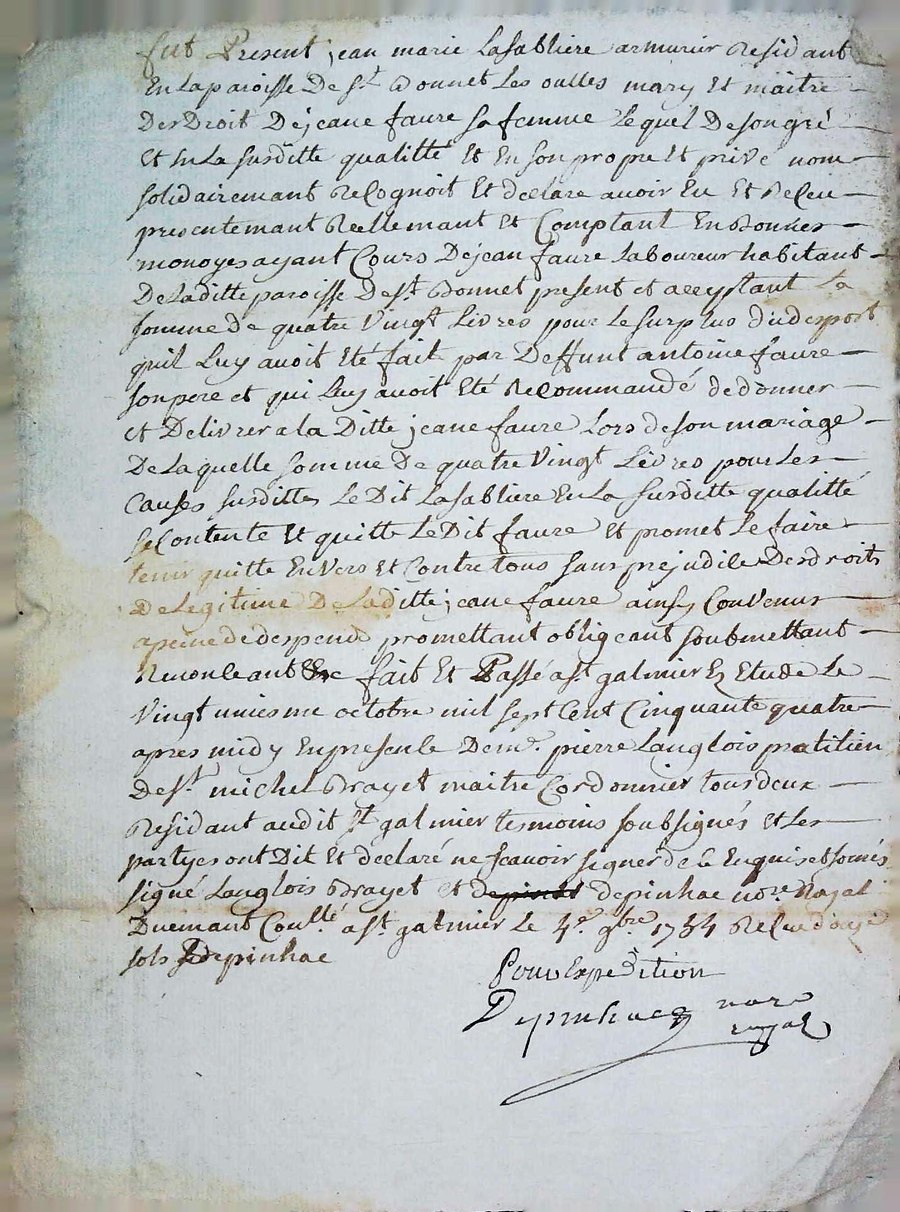 fut Present jean marie Lasabliere armurier Residant
En La paroisse De St Bonnet Les oulles mary Et maitre
Des Droit De jeane faure sa femme Lequel De son gré
Et En La susditte qualitté Et En son propre Et privé nom
solidairemant Recognoit Et declare avoir Eu Et Receu
presentemant Reellemant Et Comptant En Bonnes
monoyes ayant Cours De jean faure Laboureur habitant
De Laditte paroisse De St Bonnet present et acceptant La
somme de quatre Vingt Livres pour Le surplus du depost
quil Luy avoit Eté fait par Deffunt antoine faure
son pere et qui Luy avoit Eté Recommandé de donner
et Delivrer a la Ditte jeane faure Lors de son mariage
De Laquelle somme De quatre Vingt Livres pour Les
Causes susdittes Le Dit Lasabliere En La susditte qualitté
se Contente Et quitte Le Dit faure Et promet Le faire
tenir quitte Envers Et Contre tous sans prejudice Des droits
De Legitime De Laditte jeane faure ainsy Convenus
a peine de despend promettant obligeant soubmettant
Renonceant &c fait Et Passé a St galmier En Etude Le
Vingt uniesme octobre mil sept Cent Cinquante quatre
apres midy En presence De me. pierre Langlois praticien
De Sr michel Brayet maitre Cordonnier tous deux
Residant audit St galmier tesmoins soubsignés et Les
partyes ont Dit Et declaré ne scavoir signer de ce Enquis et somés
signé Langlois Brayet et depinhac nore Royal
Duemant Coullé a St galmier Le 4e. 9bre 1754 Receu douze
sols depinhac
Pour Expedition
Depinhacq nore
royal